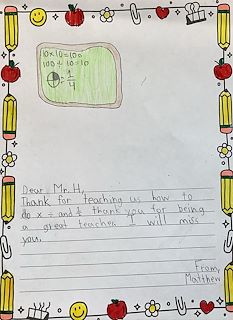 10x10=100
100÷10=10
= 1/4
Dear Mr. H,
Thank for teaching us how to
do x ÷ and ½ thank you for being
a great teacher I will miss
you.
From,
Matthew